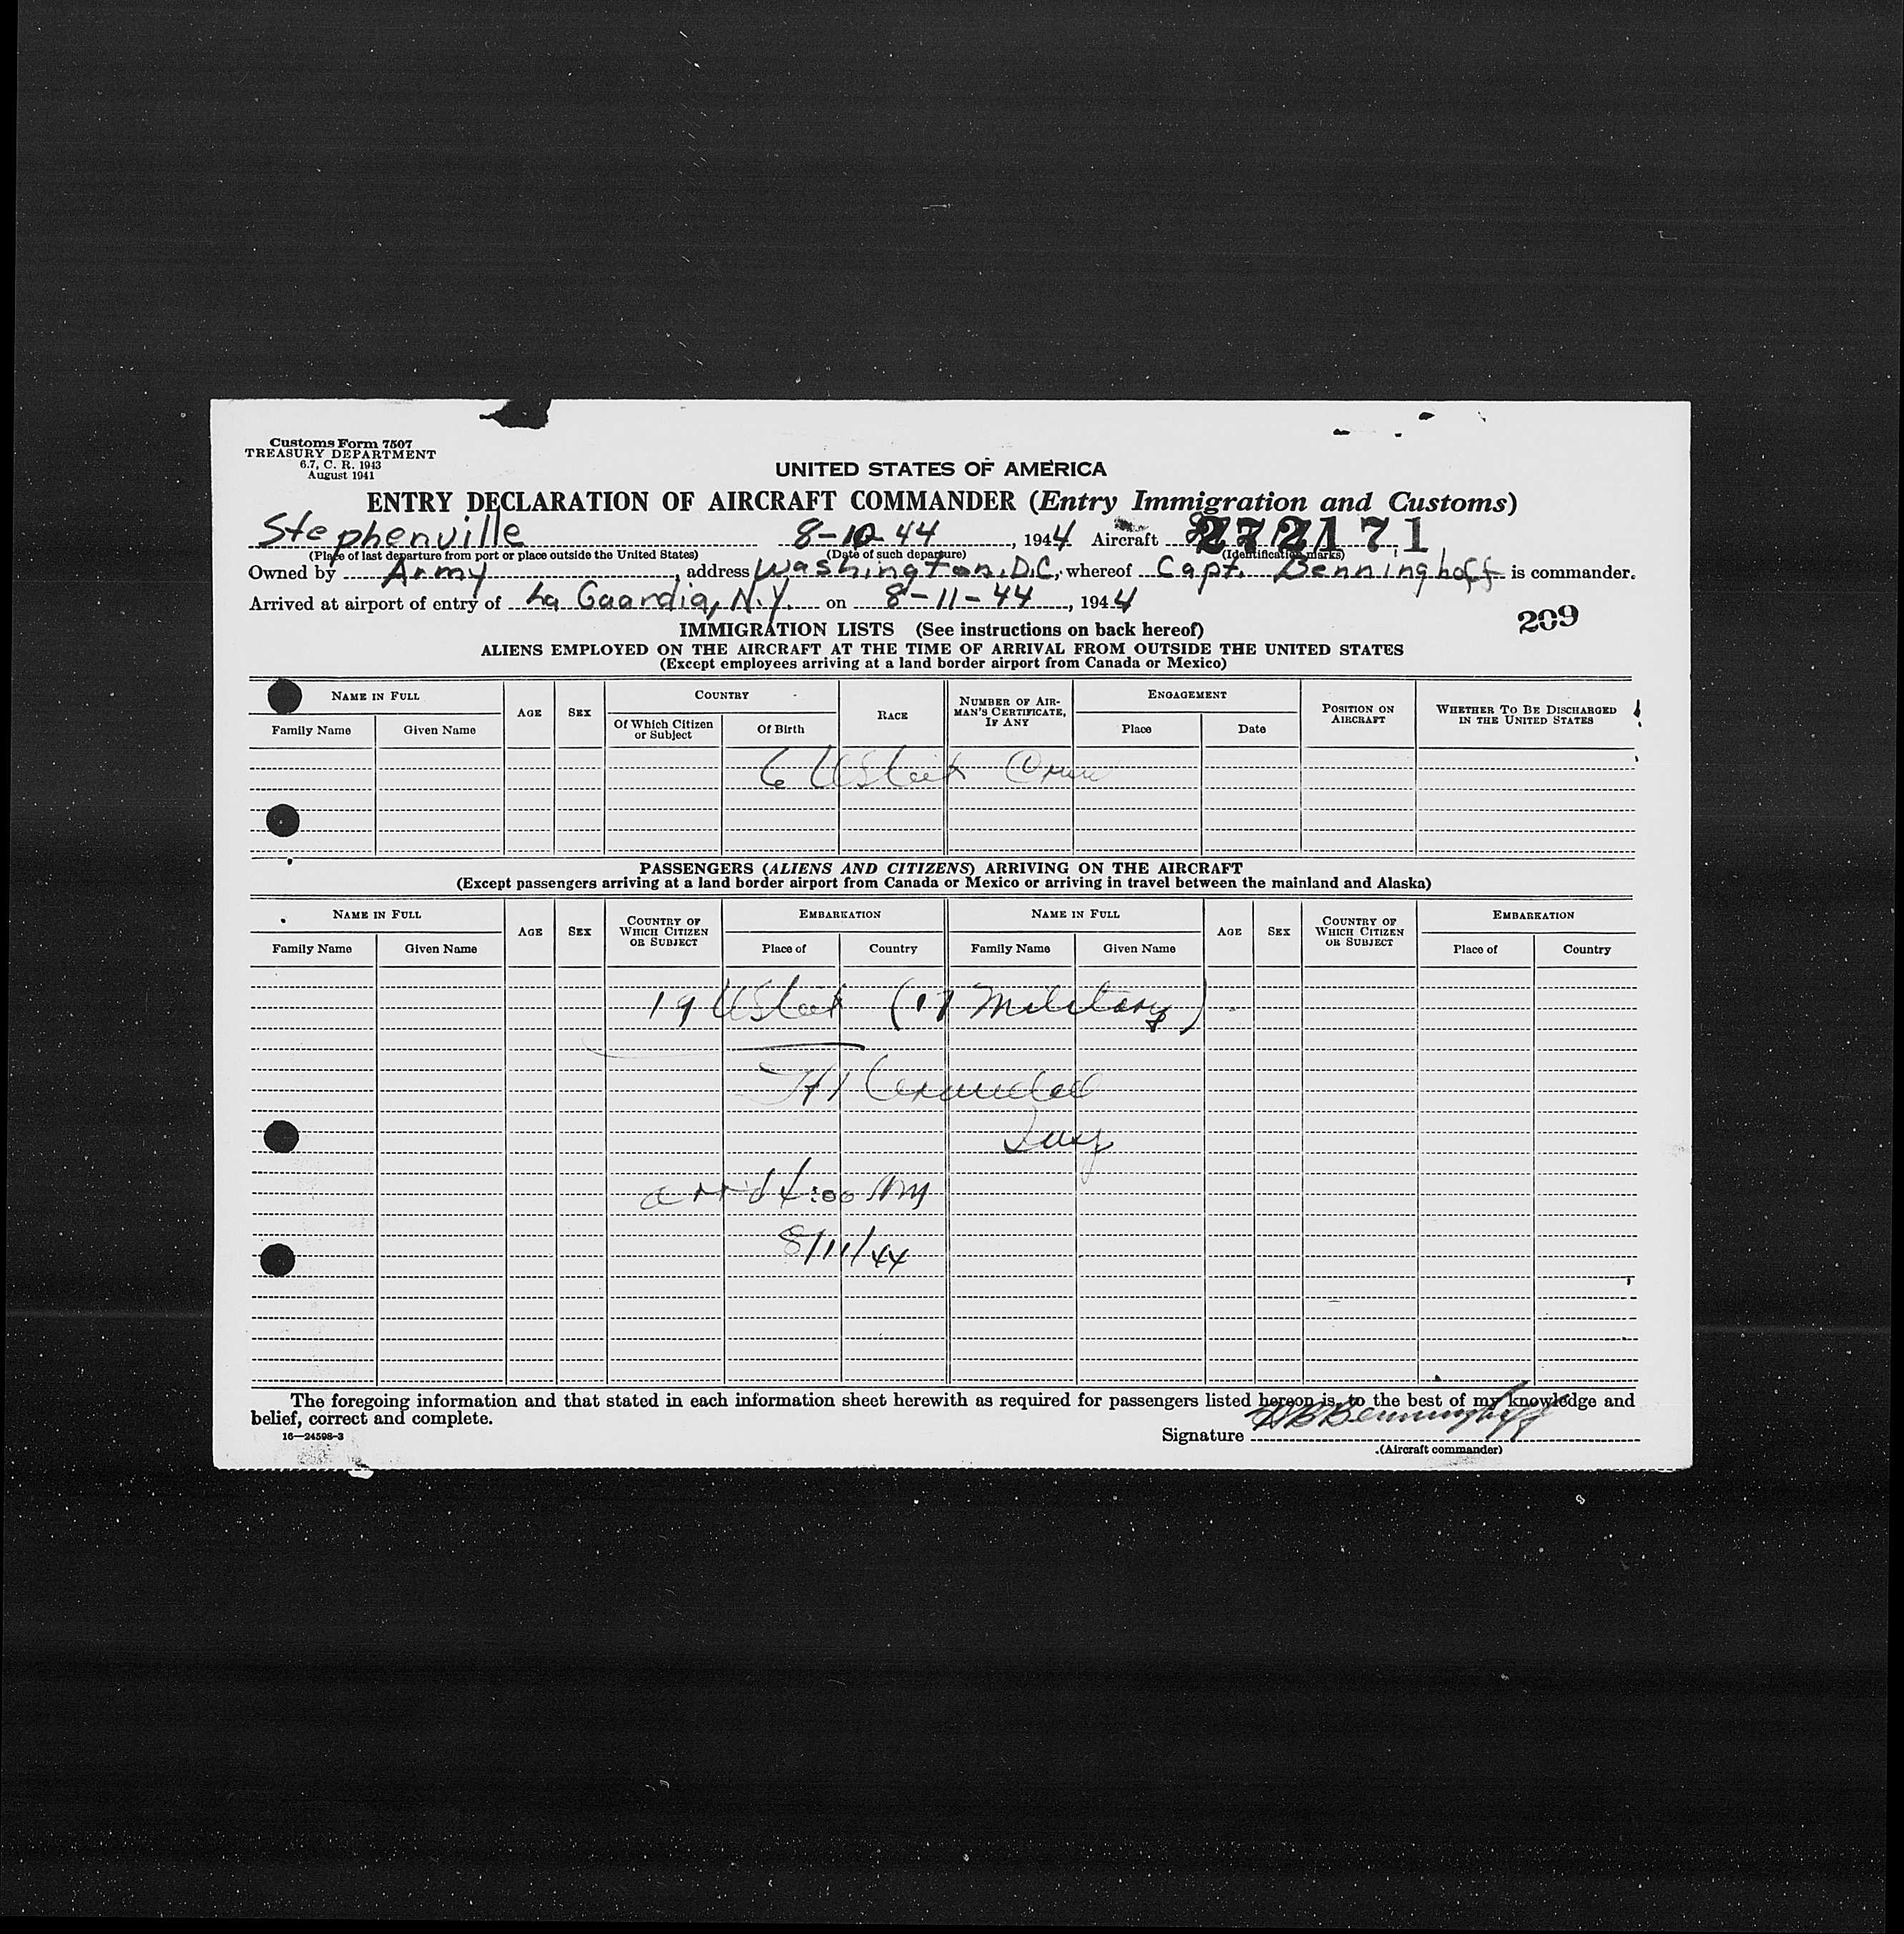 Customs Form 7507
TREASURY DEPARTMENT
6.7, C. R. 1943
August 1941
UNITED STATES OF AMERICA
ENTRY DECLARATION OF AIRCRAFT COMMANDER (Entry Immigration and Customs)
Stephenville 8-10-44, 1944 Aircraft 272171
(Place of last departure from port or place outside the United States) (Date of such departure) (Identification marks)
Owned by Army, address Washington, D.C., whereof Capt. Benninghoff is commander.
Arrived at airport of entry of La Gaardia, N.Y. on 8-11-44, 1944
209
IMMIGRATION LISTS (See instructions on back hereof)
ALIENS EMPLOYED ON THE AIRCRAFT AT THE TIME OF ARRIVAL FROM OUTSIDE THE UNITED STATES
(Except employees arriving at a land border airport from Canada or Mexico)
NAME IN FULL AGE SEX COUNTRY RACE NUMBER OF AIRMAN'S CERTIFICATE, IF ANY ENGAGEMENT POSITION ON AIRCRAFT WHETHER TO BE DISCHARGED IN THE UNITED STATES
Family Name Given Name Of Which Citizen or Subject Of Birth Place Date
6 UScit Crew
PASSENGERS (ALIENS AND CITIZENS) ARRIVING ON THE AIRCRAFT
(Except passengers arriving at a land border airport from Canada or Mexico or arriving in travel between the mainland and Alaska)
NAME IN FULL AGE SEX COUNTRY OF WHICH CITIZEN OR SUBJECT EMBARKATION NAME IN FULL AGE SEX COUNTRY OF WHICH CITIZEN OR SUBJECT EMBARKATION
Family Name Given Name Place of Country Family Name Given Name Place of Country
19 UScit (17 Military)
Insp
arr'd 4:00 AM
8/11/44
The foregoing information and that stated in each information sheet herewith as required for passengers listed hereon is, to the best of my knowledge and
belief, correct and complete.
16—24598-3
Signature Benninghoff
(Aircraft commander)